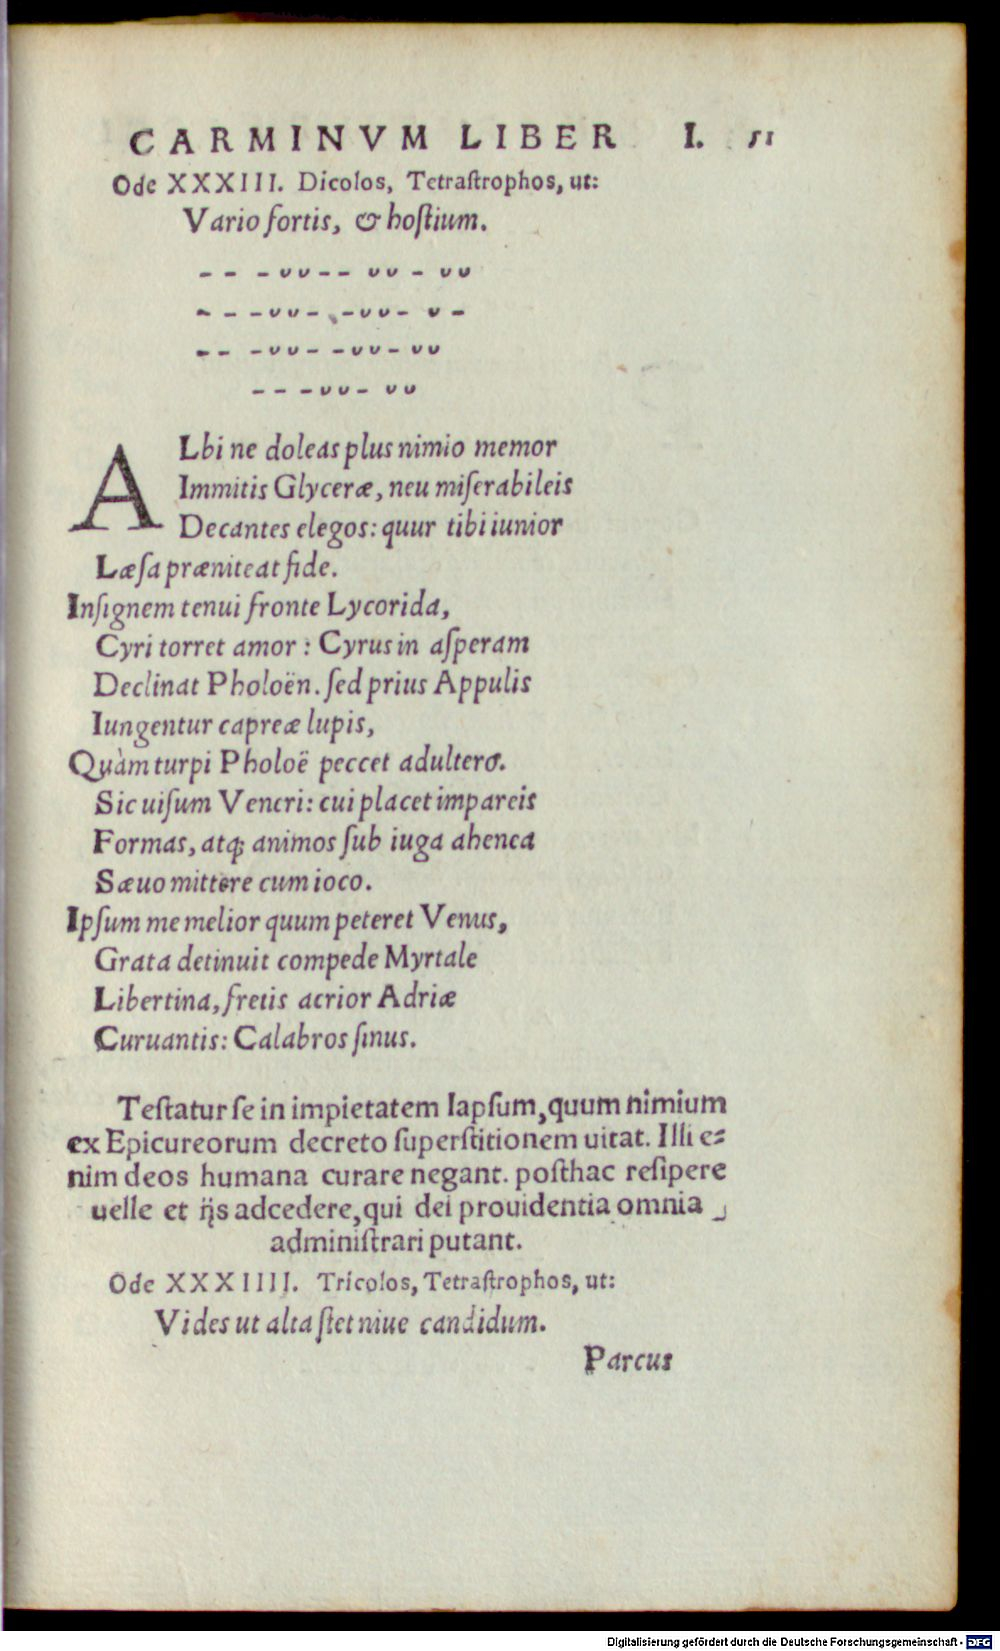 CARMINVM LIBER I. 51
Ode XXXIII. Dicolos, Tetraſtrophos, ut:
Vario fortis, & hoſtium.
– – – ᴗ ᴗ – – ᴗ ᴗ – ᴗ ᴗ
– – – ᴗ ᴗ – – ᴗ ᴗ – ᴗ –
– – – ᴗ ᴗ – – ᴗ ᴗ – ᴗ ᴗ
– – – ᴗ ᴗ – ᴗ ᴗ
ALbi ne doleas plus nimio memor
Immitis Glyceræ, neu miſerabileis
Decantes elegos: quur tibi iunior
Læſa præniteat fide.
Inſignem tenui fronte Lycorida,
Cyri torret amor: Cyrus in aſperam
Declinat Pholoën. ſed prius Appulis
Iungentur capreæ lupis,
Quàm turpi Pholoë peccet adultero.
Sic uiſum Veneri: cui placet impareis
Formas, atq; animos ſub iuga ahenea
Sæuo mittere cum ioco.
Ipſum me melior quum peteret Venus,
Grata detinuit compede Myrtale
Libertina, fretis acrior Adriæ
Curuantis: Calabros ſinus.
Teſtatur ſe in impietatem lapſum, quum nimium
ex Epicureorum decreto ſuperſtitionem uitat. Illi e=
nim deos humana curare negant. poſthac reſipere
uelle et ijs adcedere, qui dei prouidentia omnia
adminiſtrari putant.
Ode XXXIIII. Tricolos, Tetraſtrophos, ut:
Vides ut alta ſtet niue candidum.
Parcus
Digitalisierung gefördert durch die Deutsche Forschungsgemeinschaft - DFG